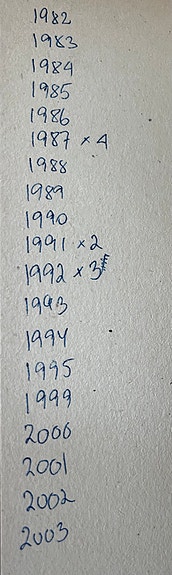 1982
1983
1984
1985
1986
1987 x 4
1988
1989
1990
1991 x 2
1992 x 3
1993
1994
1995
1999
2000
2001
2002
2003